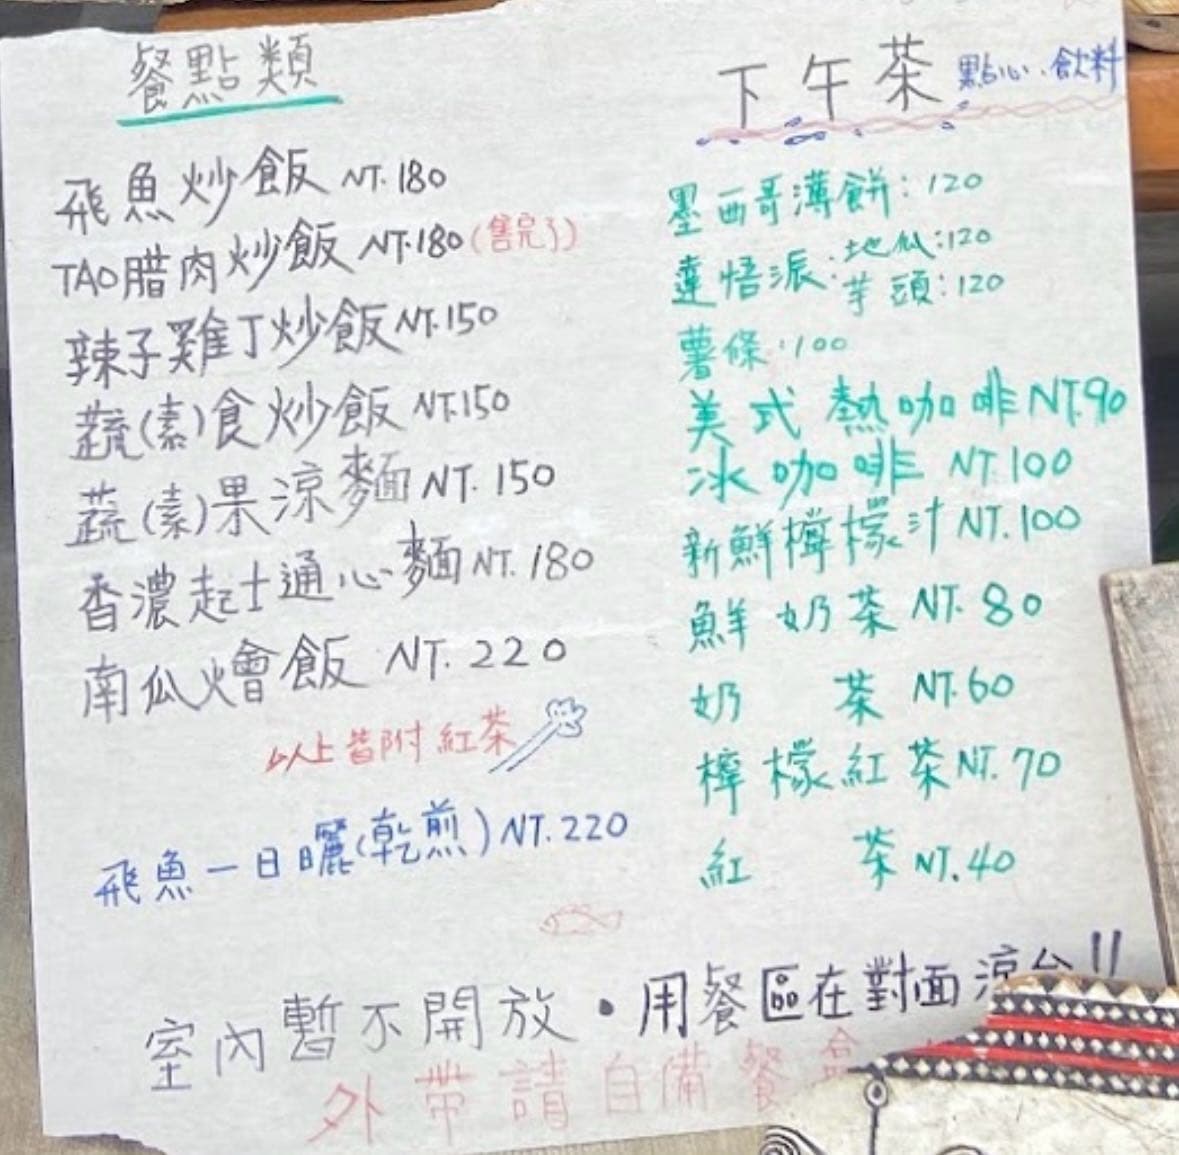 餐點類
飛魚炒飯 NT.180
TAO腊肉炒飯 NT.180(售完了)
辣子雞丁炒飯NT.150
蔬(素)食炒飯 NT.150
蔬(素)果涼麵 NT.150
香濃起士通心麵 NT.180
南瓜燴飯 NT.220
以上皆附紅茶
飛魚一日曬(乾煎) NT.220
下午茶 點心、飲料
墨西哥薄餅:120
達悟派:地瓜:120
芋頭:120
薯條:100
美式熱咖啡NT.90
冰咖啡 NT.100
新鮮檸檬汁NT.100
鮮奶茶 NT.80
奶 茶 NT.60
檸檬紅茶NT.70
紅 茶 NT.40
室內暫不開放・用餐區在對面涼台!!
外帶請自備餐盒